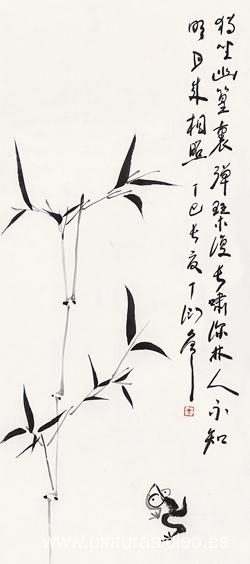 獨坐幽篁裏彈琴復長嘯深林人不知
明月來相照丁巳長夏丁衍庸
www.pinturaaloleo.es